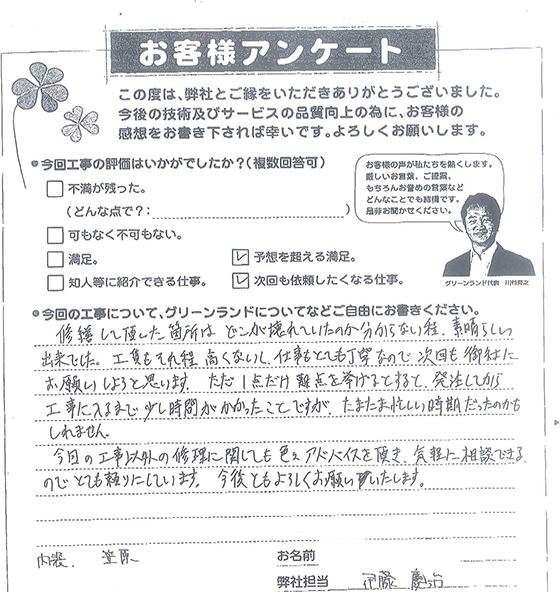 お客様アンケート
この度は、弊社とご縁をいただきありがとうございました。
今後の技術及びサービスの品質向上の為に、お客様の
感想をお書き下されば幸いです。よろしくお願いします。
今回工事の評価はいかがでしたか?(複数回答可)
不満が残った。
(どんな点で?: )
可もなく不可もない。
満足。
予想を超える満足。
知人等に紹介できる仕事。
次回も依頼したくなる仕事。
お客様の声が私たちを動くします。
厳しいお言葉、ご提案、
もちろんお誉めの言葉など
どんなことでも結構です。
是非お聞かせください。
グリーンランド代表
今回の工事について、グリーンランドについてなどご自由にお書きください。
修繕して頂した箇所は どこが壊れていたのか分からない程、素晴らしい
出来でした。工賃もそれ程 高くないし、仕事もとても丁寧なので 次回も 御社に
お願いしようと思います。ただ 1点だけ 難点を挙げるとすると、発注してから
工事に入るまで少し時間がかかったことですが、たまたま忙しい時期だったのかも
しれません。
今回の工事以外の修理に関しても色々アドバイスを頂き、気軽に相談できる
のでとても頼りにしています。今後ともよろしくお願い致します。
内装. 笠原
お名前
弊社担当 伊藤